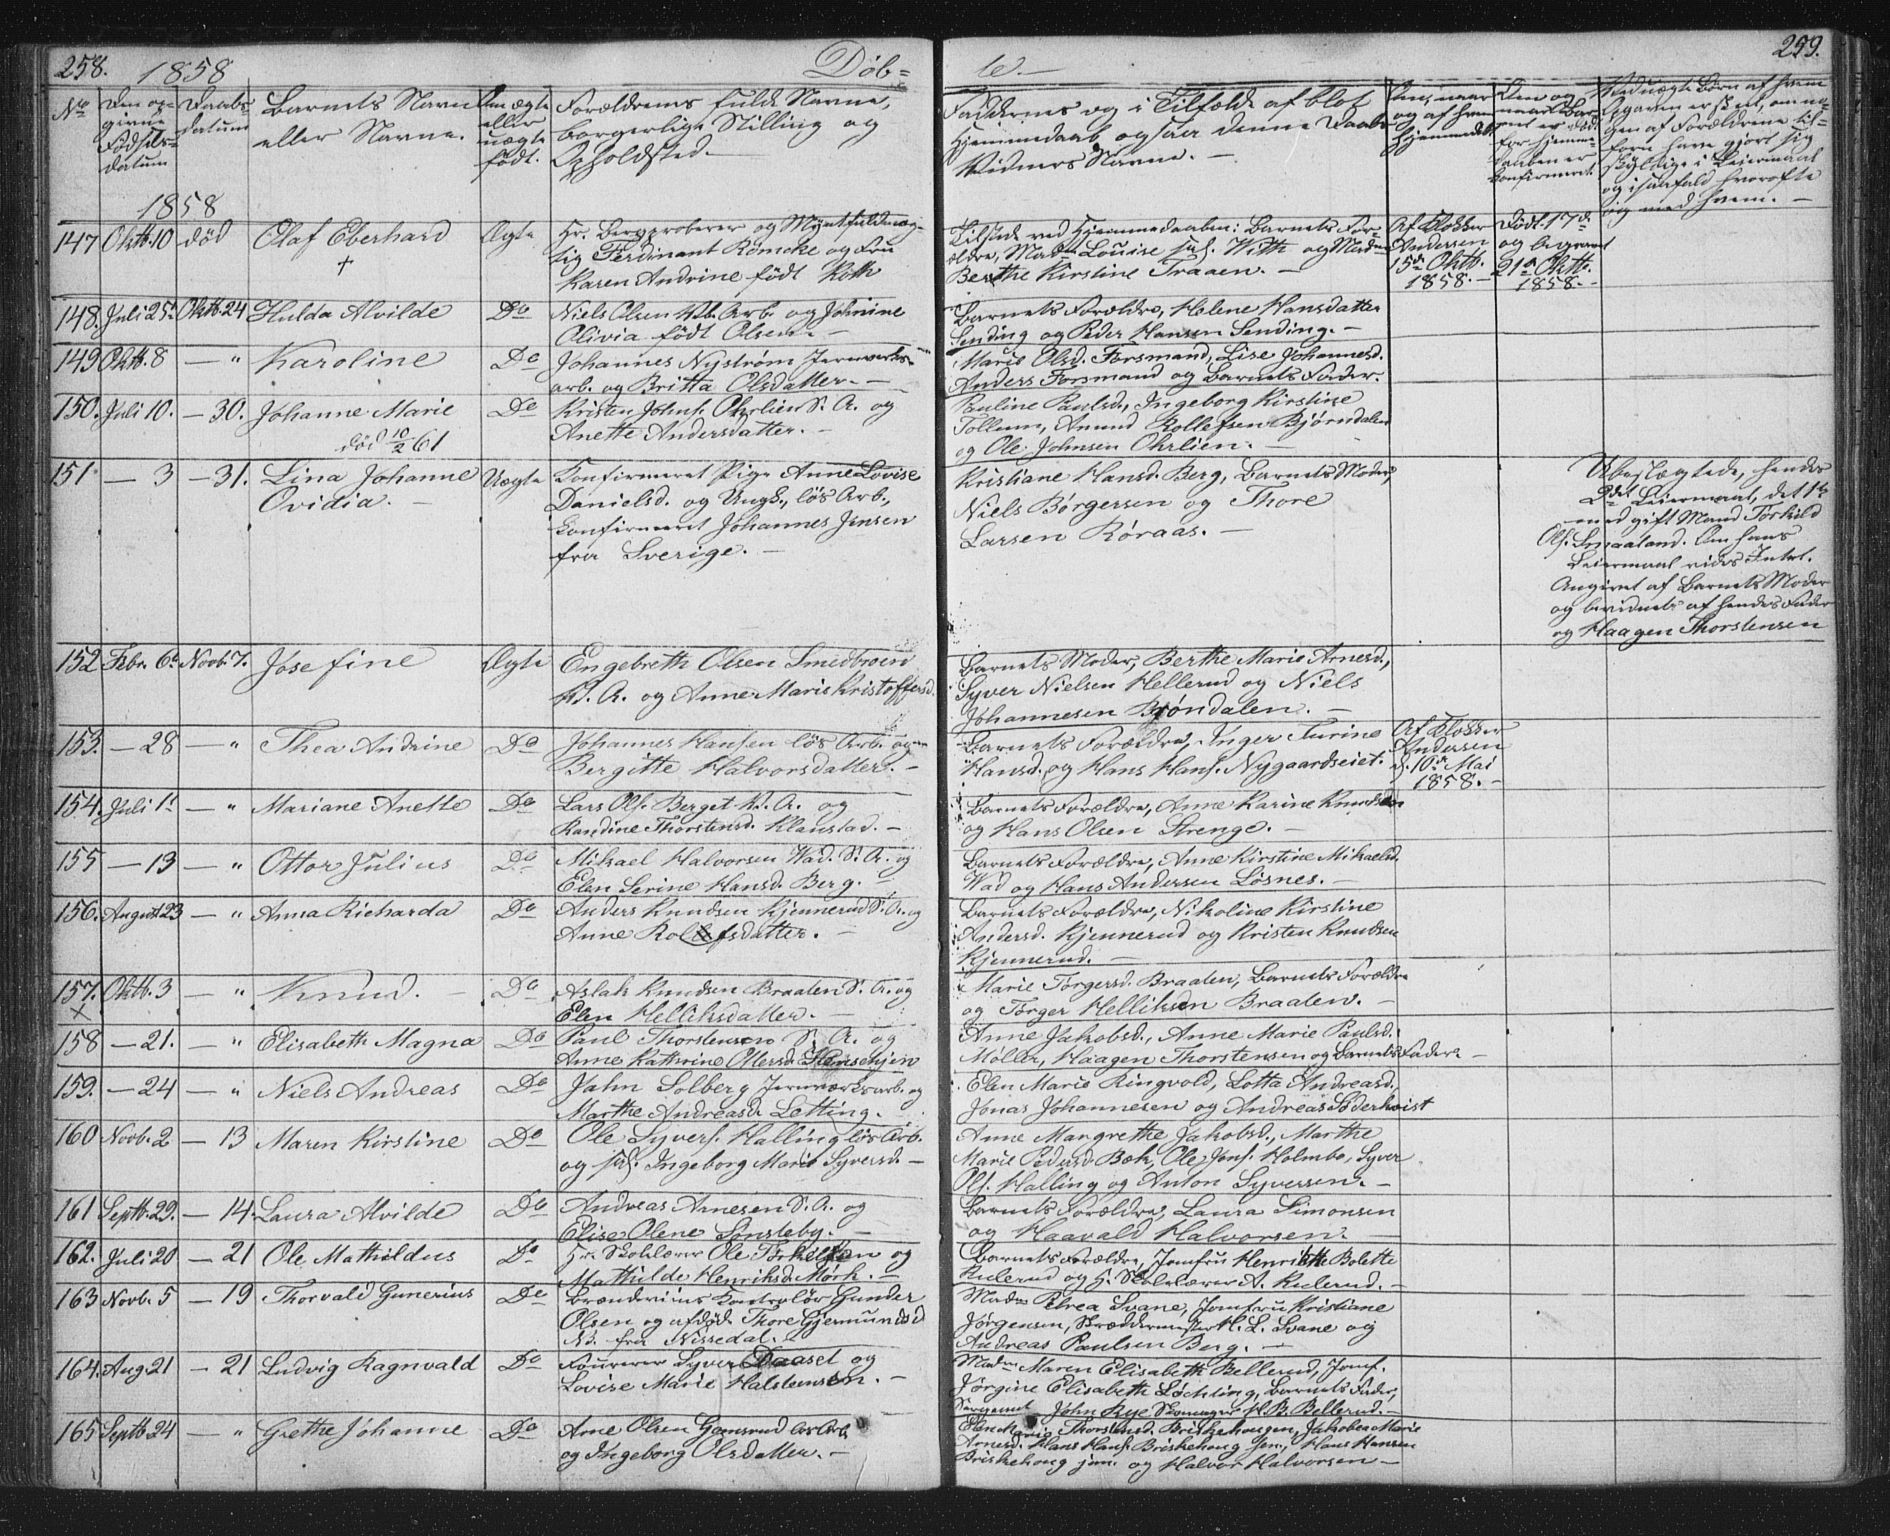 258.
1858
Døb=
te.
259.
No
Den op=
givne
Fødsels=
datum
Daabs
datum
Barnets Navn
eller Navne.
Om ægte
eller
uægte
født.
Forældrenes fulde Navne,
borgerlige Stilling og
Opholdsted.
Faddernes og i Tilfælde af blot
Hjemmedaab ogsaa denne Daabs
Vidners Navne.
og af hvem
hjemmedøbt
Ved uægte Børn af hvem
1858
147 Oktb. 10 død Olaf Eberhard Ægte Hr. Bergprober og Myntfuldmæg
† tig Ferdinant Rømcke og Frue
Karen Andrine født Roth
Tilstede ved Hjemmedaaben: Barnets For=
ældre, Madm Louise Joh. With og Madm
Berthe Kirstine Traaen. —
Af Klokker
Andersen
15de Oktb.
1858. —
Født 17de
og begravet
21de Oktb.
1858. —
148. Juli 25 Oktb. 24 Hulda Alvilde Do Niels Olsen Arb. og Johnine
Olivia født Olsen. —
Barnets Forældre, Helene Hansdatter
Sending og Peder Hansen Sending. —
149 Oktb. 8 — " Karoline Do Johannes Nystrøm Jernverks=
arb. og Britta Olsdatter. —
Marie Olsd. Forsmand, Lise Johannesd.
Anders Forsmand og Barnets Fader.
150. Juli 10. — 30. Johanne Marie Do Kristen Johns. Ohrlien S. A. og
død 10/2 61 Anette Andersdatter. —
Pauline Paulsd., Ingeborg Kirstine
Tollum, Amund Rollefsen Bjørndalen
og Ole Johnsen Ohrlien. —
151. — 3 — 31. Lina Johanne Uægte Konfirmeret Pige Anne Lovise
Ovidia. — Danielsd. og Ungk., løs Arb.,
konfirmeret Johannes Jensen
fra Sverige. —
Kristiane Hansd. Berg, Barnets Moder,
Niels Børgersen og Thore
Larsen Røraas. —
Ubeslægtede, hendes
2det Leiermaal, det 1ste
med gift Mand Torkild
Ols. Smaaland. Om hans
Leiermaal vides Intet.
Angivet af Barnets Moder
og bevidnet af hendes Fader
og Haagen Thorstensen
152 Febr. 6 Novb. 7. Josefine Ægte Engebreth Olsen Smedbroen
K. A. og Anne Marie Kristoffersd.
Barnets Moder, Berthe Marie Arnesd.,
Syver Nielsen Hellerud og Niels
Johannesen Brøndalen. —
153. — 28 — " Thea Andrine Do Johannes Hansen løs Arb. og
Bergitte Halvorsdatter. —
Barnets Forældre, Inger Turine
Hansd. og Hans Hans. Nygaardseiet.
Af Klokker
Andersen
d. 10de Mai
1858. —
154. Juli 1 — " Mariane Anette Do Lars Ols. Berget K. A. og
Randine Thorstensd. Klanstad. —
Barnets Forældre, Anne Karine Knudsen
og Hans Olsen Strenge. —
155 — 13 — " Ottor Julius Do Mikael Halvorsen Wad. S. A. og
Elen Serine Hansd. Berg. —
Barnets Forældre, Anne Kirstine Mikaelsd.
Wad og Hans Andersen Løsnes. —
156. August 23 — " Anna Richarda Do Anders Knudsen Kjennerud S. A. og
Anne Rollefsdatter. —
Barnets Forældre, Nikoline Kirstine
Andersd. Kjennerud og Kristen Knudsen
Kjennerud. —
157. Oktb. 3 — " Knud. — Do Aslak Knudsen Braaten S. A. og
× Elen Helliksdatter. —
Marie Torgersd. Braaten, Barnets Forældre
og Torger Helliksen Braaten. —
158 — 21. — " Elisabeth Magna Do Paul Thorstensen S. A. og
Anne Kathrine Olersd.
Anne Jakobsd., Anne Marie Paulsd.
Møller, Haagen Thorstensen og Barnets Fader. —
159. — 24 — " Niels Andreas Do Jahn Solberg Jernværksarb. og
Marthe Andreasd. Letting. —
Elen Marie Ringvold, Lotta Andreasd.
Jonas Johannesen og Andreas Søderkvist
160 Novb. 2 — 13 Maren Kirstine Do Ole Syvers. Halling løs Arb.
og Ingeborg Marie Syversd. —
Anne Margrethe Jakobsd., Marthe
Marie Pedersd. Bæk, Ole Jons. Holmbo, Syver
Ols. Halling og Anton Syversen. —
161 Septb. 29. — 14. Laura Alvilde Do Andreas Arnesen S. A. og
Elise Olene Sønsteby. —
Barnets Forældre, Laura Simonsen
og Haavald Halvorsen. —
162. Juli 20 — 21 Ole Mathildus Do Hr. Skolelærer Ole Torkelsen og
Mathilde Henriksd. Mørk. —
Barnets Forældre, Jomfru Henriette Bolette
Rulerud og H. Skolelærer A. Rulerud. —
163 Novb. 5 — 19 Thorvald Gunerius Do Brænderiets Kontrolør Gunder
Olsen og afdøde Thore Gjermundsd
No. fra Nissedal. —
Madm Petrea Svane, Jomfru Kristiane
Jørgensen, Skræddermester H. L. Svane og
Andreas Paulsen Berg. —
164. Aug. 21 — 21 Ludvig Ragnvald Do Fourerer Syver Daaset og
Lovise Marie Halstensen. —
Madm Maren Elisabeth Bellerud, Jomf.
Jørgine Elisabeth Løchting, Barnets Fader,
Sergeant John Rye Skomager H. B. Bellerud. —
165 Septb. 24 — " Grethe Johanne Do Arne Olsen Gamrud Arb.
og Ingeborg Olsdatter. —
Elen Maria Thorsteinsd. Briskehougen, Jakobea Marie
Arnesd. Hans Hans. Briskehoug sen., Hans Hansen
Briskehoug jun. og Halvor Halvorsen —